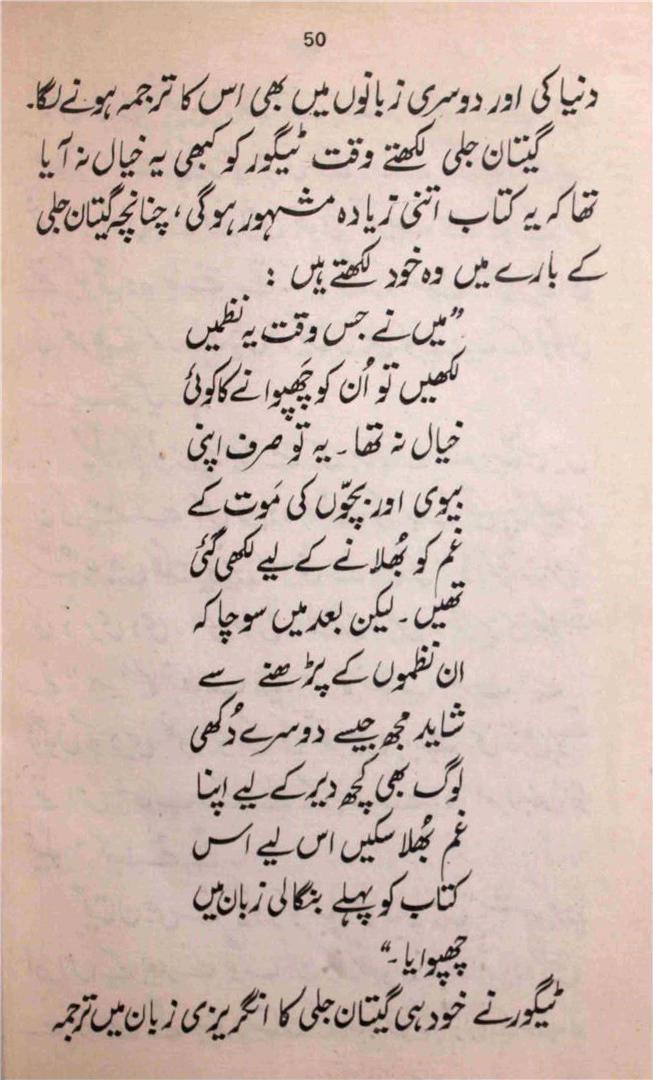 50
دنیا کی اور دوسری زبانوں میں بھی اس کا ترجمہ ہونے لگا۔
گیتان جلی لکھتے وقت ٹیگور کو کبھی یہ خیال نہ آیا
تھا کہ یہ کتاب اتنی زیادہ مشہور ہوگی، چنانچہ گیتان جلی
کے بارے میں وہ خود لکھتے ہیں :
”میں نے جس وقت یہ نظمیں
لکھیں تو اُن کو چَھپوانے کا کوئی
خیال نہ تھا۔ یہ تو صرف اپنی
بیوی اور بچّوں کی مَوت کے
غم کو بُھلانے کے لیے لکھی گئی
تھیں۔ لیکن بعد میں سوچا کہ
ان نظموں کے پڑھنے سے
شاید مجھ جیسے دوسرے دُکھی
لوگ بھی کچھ دیر کے لیے اپنا
غم بُھلا سکیں اس لیے اس
کتاب کو پہلے بنگالی زبان میں
چھپوایا۔“
ٹیگور نے خود ہی گیتان جلی کا انگریزی زبان میں ترجمہ